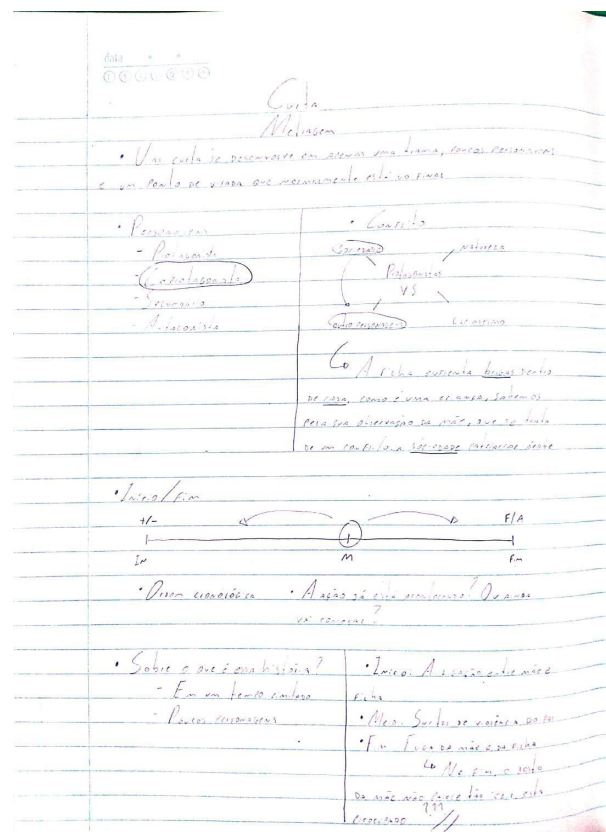 data
D S T Q Q S S
Curta
Metragem
• Um curta se desenvolve em apenas uma trama, poucos personagens
e um ponto de virada que normalmente está no final
• Personagens
- Protagonista
- Coprotagonista
- Secundário
- Antagonista
• Conflito
Sociedade
Natureza
Protagonistas
VS
outro personagem
Ele mesmo
A filha brigas dentro
de casa, como é uma criança, sabemos
pela sua observação da mãe, que se trata
de um conflito sociedade patriarcal
• Início/Fim
+/-
F/A
In
M
Fim
• Ordem cronológica
• A ação já está acontecendo? Ou ainda
vai começar?
• Sobre o que é essa história?
- Em um tempo limitado
- Poucos personagens
• Início: A relação entre mãe e
filha
• Meio: Surtos de violência do pai
• Fim: Fuga da mãe e da filha
No fim, o rosto
da mãe não parece tão e está
???